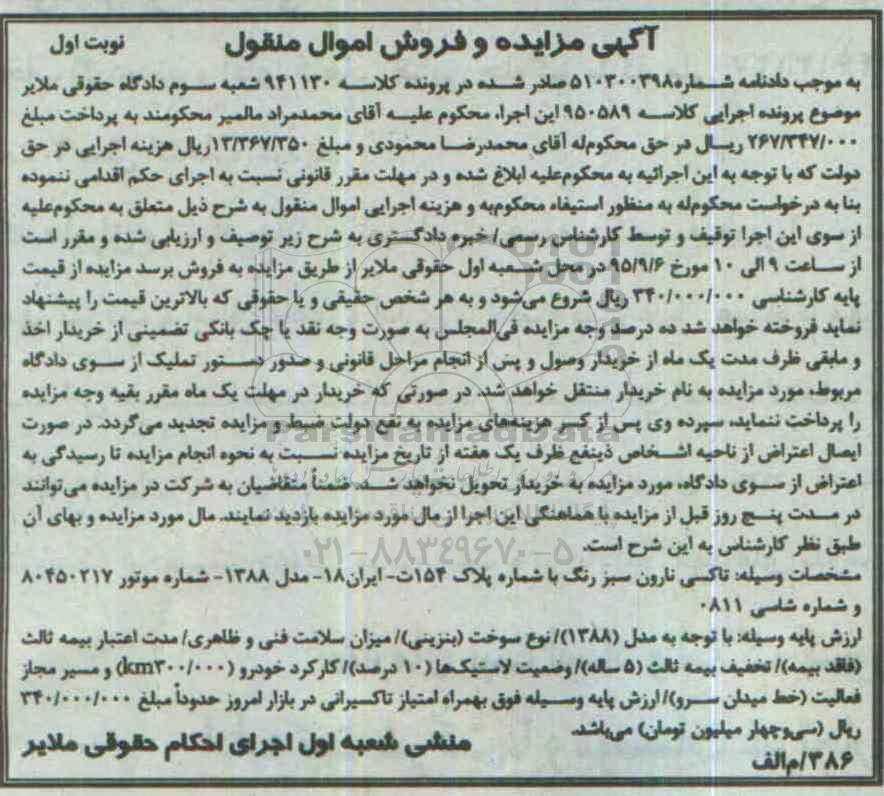 آگهی مزایده و فروش اموال منقول نوبت اول
به موجب دادنامه شماره ۵۱۰۳۰۰۳۹۸ صادر شده در پرونده کلاسه ۹۴۱۱۳۰ شعبه سوم دادگاه حقوقی ملایر
موضوع پرونده اجرایی کلاسه ۹۵۰۵۸۹ این اجرا، محکوم علیه آقای محمدمراد مالمیر محکومند به پرداخت مبلغ
۲۶۷/۳۴۷/۰۰۰ ریال در حق محکوم‌له آقای محمدرضا محمودی و مبلغ ۱۳/۳۶۷/۳۵۰ریال هزینه اجرایی در حق
دولت که با توجه به این اجرائیه به محکوم‌علیه ابلاغ شده و در مهلت مقرر قانونی نسبت به اجرای حکم اقدامی ننموده
بنا به درخواست محکوم‌له به منظور استیفاء محکوم‌به و هزینه اجرایی اموال منقول به شرح ذیل متعلق به محکوم‌علیه
از سوی این اجرا توقیف و توسط کارشناس رسمی/ خبره دادگستری به شرح زیر توصیف و ارزیابی شده و مقرر است
از ساعت ۹ الی ۱۰ مورخ ۹۵/۹/۶ در محل شعبه اول حقوقی ملایر از طریق مزایده به فروش برسد مزایده از قیمت
پایه کارشناسی ۳۴۰/۰۰۰/۰۰۰ ریال شروع می‌شود و به هر شخص حقیقی و یا حقوقی که بالاترین قیمت را پیشنهاد
نماید فروخته خواهد شد ده درصد وجه مزایده فی‌المجلس به صورت وجه نقد یا چک بانکی تضمینی از خریدار اخذ
و مابقی ظرف مدت یک ماه از خریدار وصول و پس از انجام مراحل قانونی و صدور دستور تملیک از سوی دادگاه
مربوط، مورد مزایده به نام خریدار منتقل خواهد شد. در صورتی که خریدار در مهلت یک ماه مقرر بقیه وجه مزایده
را پرداخت ننماید، سپرده وی پس از کسر هزینه‌های مزایده به نفع دولت ضبط و مزایده تجدید می‌گردد. در صورت
ایصال اعتراض از ناحیه اشخاص ذینفع ظرف یک هفته از تاریخ مزایده نسبت به نحوه انجام مزایده تا رسیدگی به
اعتراض از سوی دادگاه، مورد مزایده به خریدار تحویل نخواهد شد. ضمناً متقاضیان به شرکت در مزایده می‌توانند
در مدت پنج روز قبل از مزایده با هماهنگی این اجرا از مال مورد مزایده بازدید نمایند. مال مورد مزایده و بهای آن
طبق نظر کارشناس به این شرح است.
ParsNamadData
۰۲۱-۸۸۳۴۹۶۷۰-۵
مشخصات وسیله: تاکسی نارون سبز رنگ با شماره پلاک ۱۵۴ت- ایران۱۸- مدل ۱۳۸۸- شماره موتور ۸۰۴۵۰۲۱۷
و شماره شاسی ۰۸۱۱
ارزش پایه وسیله: با توجه به مدل (۱۳۸۸)/ نوع سوخت (بنزینی)/ میزان سلامت فنی و ظاهری/ مدت اعتبار بیمه ثالث
(فاقد بیمه)/ تخفیف بیمه ثالث (۵ ساله)/ وضعیت لاستیک‌ها (۱۰ درصد)/ کارکرد خودرو (km۳۰۰/۰۰۰) و مسیر مجاز
فعالیت (خط میدان سرو)/ ارزش پایه وسیله فوق بهمراه امتیاز تاکسیرانی در بازار امروز حدوداً مبلغ ۳۴۰/۰۰۰/۰۰۰
ریال (سی‌وچهار میلیون تومان) می‌باشد.
منشی شعبه اول اجرای احکام حقوقی ملایر
۳۸۶/م‌الف